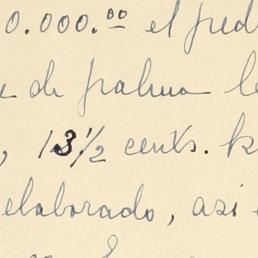 0.000.00 el ped
e de palma le
, 13 1/2 cents. k
elaborado, asi